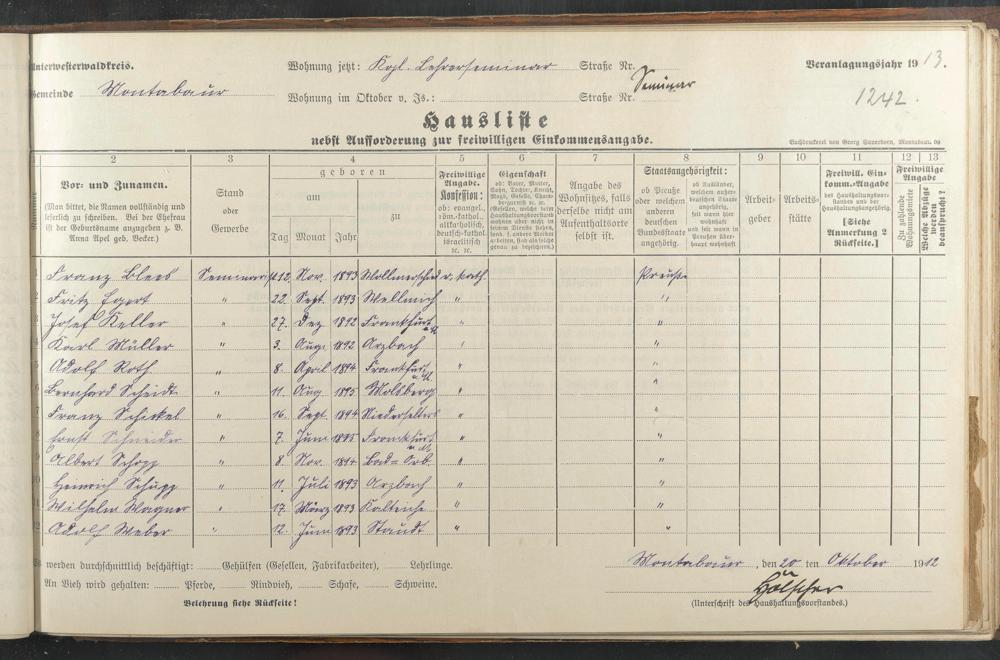 Unterwesterwaldkreis. Wohnung jetzt: Kgl. Lehrerseminar Straße Nr. Veranlagungsjahr 1913.
Gemeinde Montabaur Wohnung im Oktober v. Js.: Straße Nr. Seminar 1242.
Hausliste
nebst Aufforderung zur freiwilligen Einkommensangabe.
Buchdruckerei von Georg Sauerborn, Montabaur. 09
2 3 4 5 6 7 8 9 10 11 12 13
Vor- und Zunamen.
(Man bittet, die Namen vollständig und
leserlich zu schreiben. Bei der Ehefrau
ist der Geburtsname anzugeben z. B.
Anna Apel geb. Becker.)
Stand
oder
Gewerbe
geboren
am
zu
Tag Monat Jahr
Freiwillige
Angabe.
Konfession:
ob: evangel.,
röm.-kathol.,
altkatholisch,
deutsch-kathol.
israelitisch
ec. ec.
Eigenschaft
ob: Vater, Mutter,
Sohn, Tochter, Knecht,
Magd, Geselle,
Angabe des
Wohnsitzes, falls
derselbe nicht am
Aufenthaltsorte
selbst ist.
Staatsangehörigkeit:
ob Preuße
oder welchem
anderen
deutschen
Bundesstaate
angehörig.
ob Ausländer,
welchem außer-
deutschen Staate
angehörig,
seit wann hier
wohnhaft und
seit wann in
Preußen über-
haupt wohnhaft
Arbeit-
geber
Arbeits-
stätte
Freiwill. Ein-
komm.-Angabe
des Haushaltungsvor-
standes und der
Haushaltungsangehörig.
[Siehe
Anmerkung 2
Rückseite.]
Freiwillige
Angabe.
Zu zahlende
Wohnungsmiete
Welche Abzüge
werden
beansprucht?
Franz Blees Seminarist 12. Nov. 1893 Wollmerschied r. kath. Preuße
2 Fritz Egert " 22. Sept. 1893 Wellmich " "
3 Josef Keller " 27. Dez 1892 Frankfurt a/M " "
4 Karl Müller " 3. Aug 1892 Arzbach " "
5 Adolf Roth " 8. April 1894 Frankfurt a. M. " "
6 Bernhard Scheidt " 11. Aug 1895 Molsberg " "
7 Franz Schickel " 16. Sept. 1894 Niederselters " "
8 Ernst Schneider " 7. Juni 1895 Frankfurt a. M. " "
9 Albert Schopp " 8. Nov. 1894 Bad-Orb. " "
10 Heinrich Schupp " 11. Juli 1893 Arzbach " "
11 Wilhelm Wagner " 17. März 1893 " "
12 Adolf Weber " 12. Juni 1893 Staudt " "
Es werden durchschnittlich beschäftigt: Gehülfen (Gesellen, Fabrikarbeiter), Lehrlinge.
An Vieh wird gehalten: Pferde, Rindvieh, Schafe, Schweine.
Belehrung siehe Rückseite!
Montabaur, den 20 ten Oktober 1912
Hölscher
(Unterschrift des Haushaltungsvorstandes.)